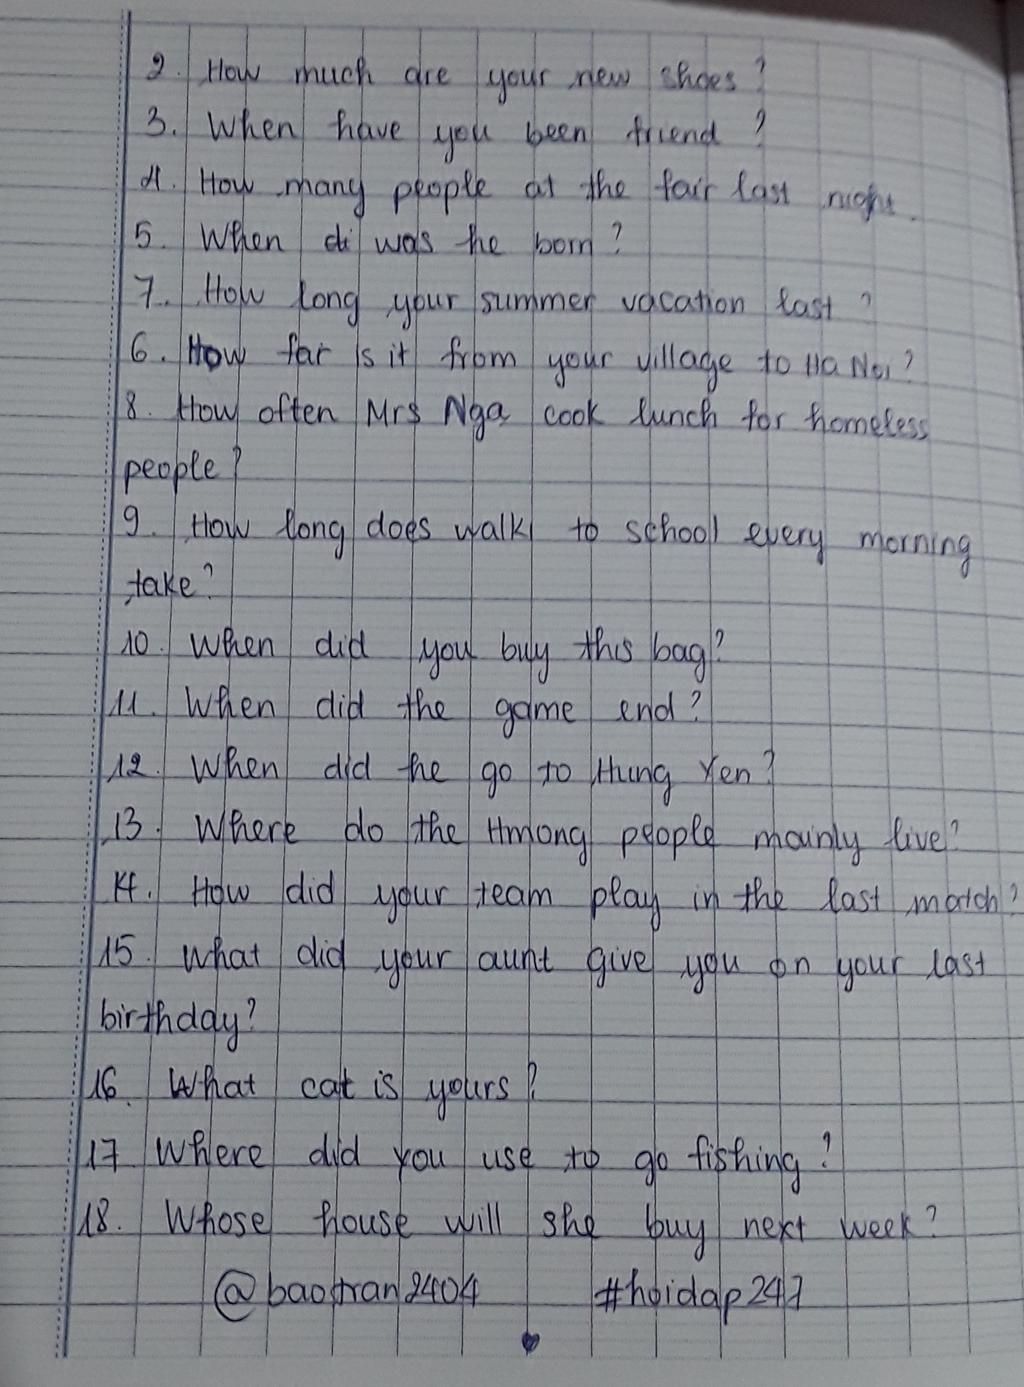 2. How much are your new shoes?
3. When have you been friend?
4. How many people at the fair last night.
5. When di was he born?
7. How long your summer vacation last?
6. How far is it from your village to Ha Noi?
8. How often Mrs Nga cook lunch for homeless
people?
9. How long does walk to school every morning
take?
10. When did you buy this bag?
11. When did the game end?
12. When did he go to Hung Yen?
13. Where do the Hmong people mainly live?
14. How did your team play in the last match?
15. What did your aunt give you on your last
birthday?
16. What cat is yours?
17 Where did you use to go fishing?
18. Whose house will she buy next week?
@baotran2404 #hoidap247